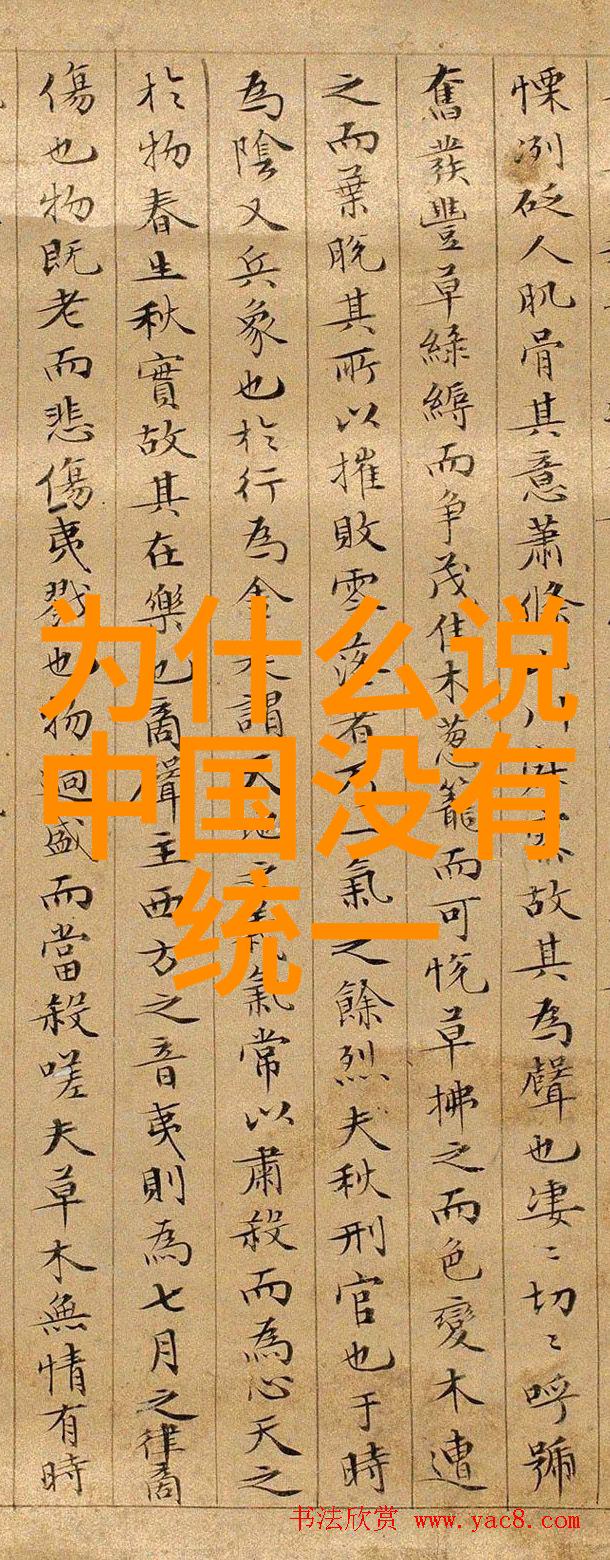 为什么说
中国没有
统一
慄冽砭人肌骨其意蕭條山川寂寥故其為聲也淒〻切〻呼號
奮發豐草綠縟而争茂佳木葱籠而可悅草拂之而色變木遭
之而葉脫其所以摧敗零落者乃一氣之餘烈夫秋刑官也于時
為陰又兵象也於行為金是謂天地之義氣常以肅殺而為心天之
於物春生秋實故其在樂也商聲主西方之音夷則為七月之律商
傷也物既老而悲傷夷戮也物過盛而當殺嗟夫草木無情有時
书法欣赏 www.yac8.com